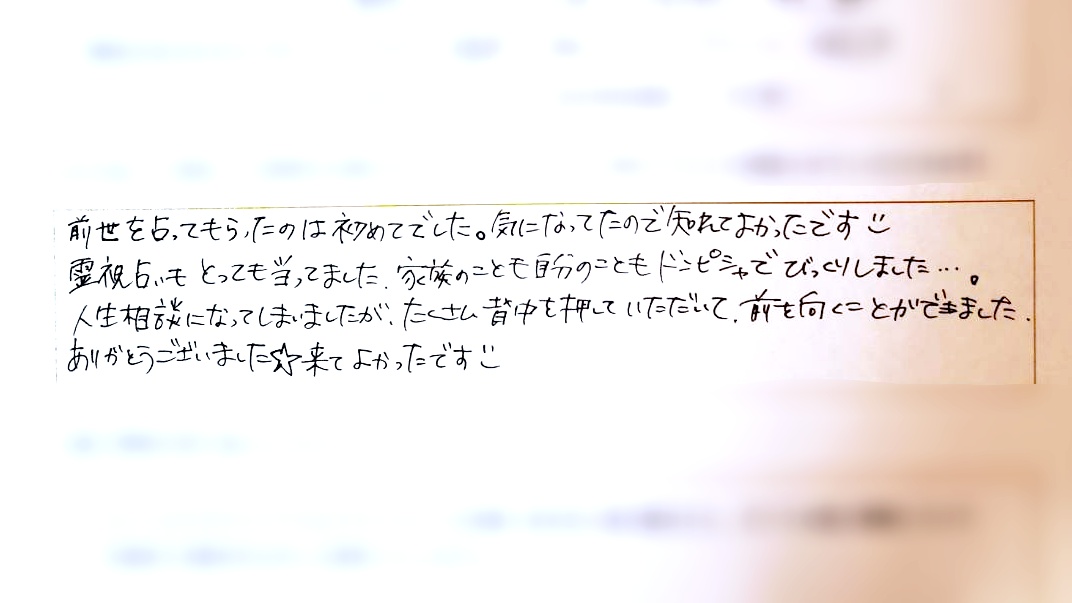 前世を占ってもらったのは初めてでした。気になってたので知れてよかったです
霊視占いも とっても当ってました、家族のことも自分のことも ドンピシャで びっくりしました…。
人生相談になってしまいましたが、たくさん 背中を押して いただいて、前を向くことができました、
ありがとうございました☆来て よかったです